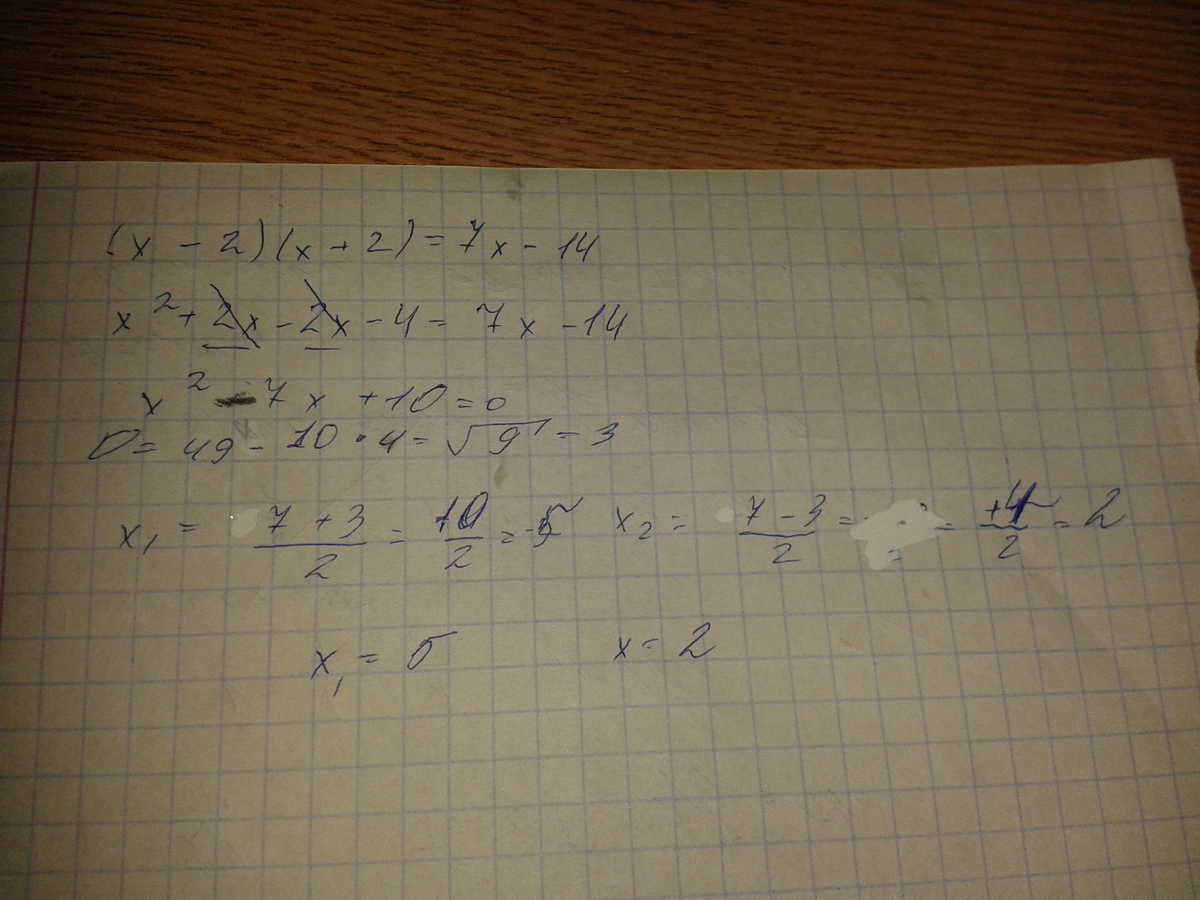 (x - 2)(x + 2) = 7x - 14
x² + 2x - 2x - 4 = 7x - 14
x² - 7x + 10 = 0
D = 49 - 10 · 4 = √9 = 3
x₁ = (7 + 3)/2 = 10/2 = 5 x₂ = (7 - 3)/2 = = +4/2 = 2
x₁ = 5 x = 2